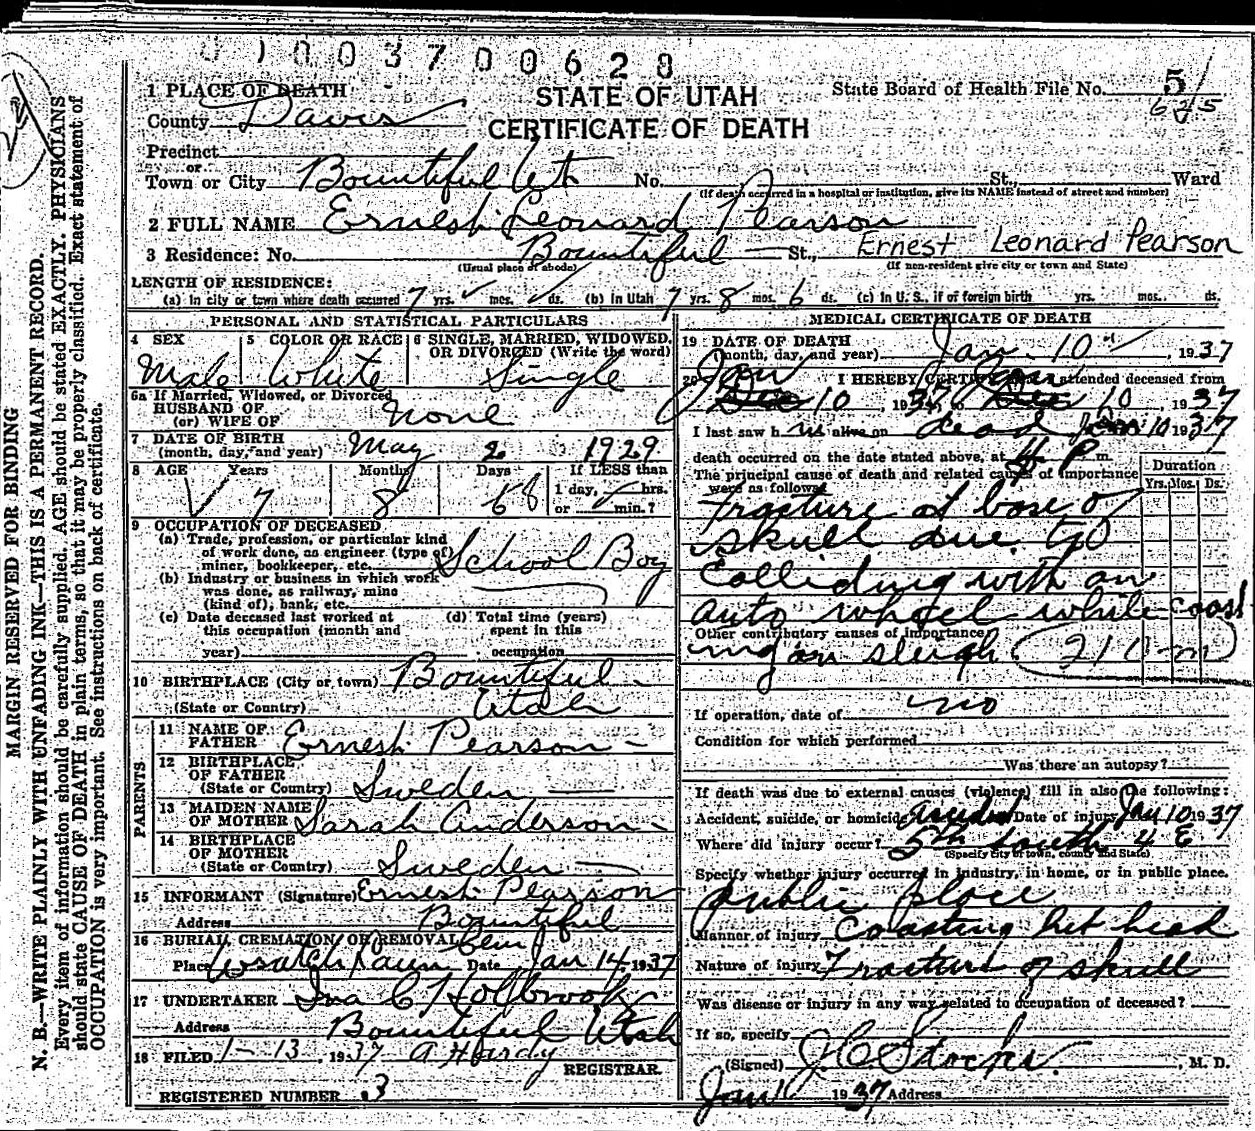 0 1 0 0 3 7 0 0 6 2 8
STATE OF UTAH
CERTIFICATE OF DEATH
State Board of Health File No. 51
625
MARGIN RESERVED FOR BINDING
N. B.—WRITE PLAINLY WITH UNFADING INK—THIS IS A PERMANENT RECORD.
Every item of information should be carefully supplied. AGE should be stated EXACTLY. PHYSICIANS
should state CAUSE OF DEATH in plain terms, so that it may be properly classified. Exact statement of
OCCUPATION is very important. See instructions on back of certificate.
1 PLACE OF DEATH
County Davis
Precinct
or
Town or City Bountiful Ut No. St., Ward
(If death occurred in a hospital or institution, give its NAME instead of street and number)
2 FULL NAME Ernest Leonard Pearson
3 Residence: No. Bountiful St., Ernest Leonard Pearson
(Usual place of abode) (If non-resident give city or town and State)
LENGTH OF RESIDENCE:
(a) In city or town where death occurred 7 yrs. mos. ds. (b) In Utah 7 yrs. 8 mos. 6 ds. (c) In U. S., if of foreign birth yrs. mos. ds.
PERSONAL AND STATISTICAL PARTICULARS
4 SEX Male
5 COLOR OR RACE White
6 SINGLE, MARRIED, WIDOWED, OR DIVORCED (Write the word) Single
6a If Married, Widowed, or Divorced
HUSBAND OF
(or) WIFE OF none
7 DATE OF BIRTH
(month, day, and year) May 2 1929
8 AGE Years Months Days If LESS than
7 8 6 8 1 day, hrs.
or min.?
9 OCCUPATION OF DECEASED
(a) Trade, profession, or particular kind
of work done, as engineer (type of)
miner, bookkeeper, etc. School Boy
(b) Industry or business in which work
was done, as railway, mine
(kind of), bank, etc.
(c) Date deceased last worked at
this occupation (month and
year)
(d) Total time (years)
spent in this
occupation
10 BIRTHPLACE (City or town) Bountiful
(State or Country) Utah
PARENTS
11 NAME OF
FATHER Ernest Pearson
12 BIRTHPLACE
OF FATHER
(State or Country) Sweden
13 MAIDEN NAME
OF MOTHER Sarah Anderson
14 BIRTHPLACE
OF MOTHER
(State or Country) Sweden
15 INFORMANT (Signature) Ernest Pearson
Address Bountiful
16 BURIAL CREMATION OR REMOVAL Cem
Place Wasatch Lawn Date Jan 14, 1937
17 UNDERTAKER Ina C Holbrook
Address Bountiful Utah
18 FILED 1-13, 1937 A Hardy
REGISTRAR
REGISTERED NUMBER 3
MEDICAL CERTIFICATE OF DEATH
19 DATE OF DEATH
(month, day, and year) Jan. 10, 1937
20 I HEREBY CERTIFY attended deceased from
Jan Dec 10, 1937, to Jan Dec 10, 1937
I last saw h im alive on dead Jan 10 1937
death occurred on the date stated above, at 4 P m.
The principal cause of death and related causes of importance
were as follows: Duration
Yrs. Mos. Ds.
Fracture at base of
skull due to
colliding with an
auto wheel while coast
Other contributary causes of importance
ing on sleigh
If operation, date of no
Condition for which performed
Was there an autopsy?
If death was due to external causes (violence) fill in also the following:
Accident, suicide, or homicide accident Date of injury Jan 10 1937
Where did injury occur? 5th South 4 E
(Specify city or town, county and State)
Specify whether injury occurred in industry, in home, or in public place.
public place
Manner of injury Coasting hit head
Nature of injury Fracture of skull
Was disease or injury in any way related to occupation of deceased?
If so, specify
(Signed) J C Stocks, M. D.
Jan 11 1937 Address